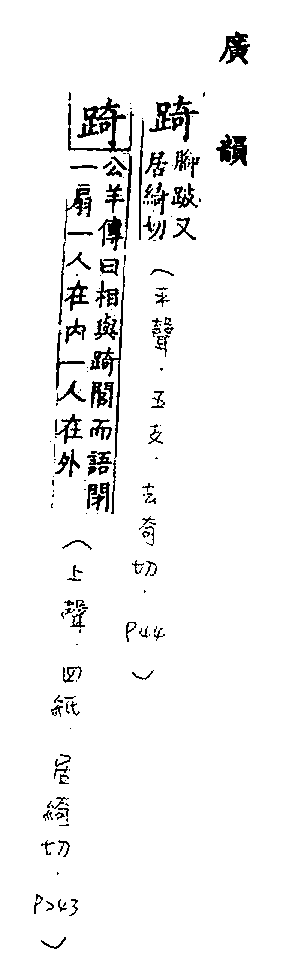 廣韻
踦腳跛又居綺切(平聲.五支.去奇切.P44)
踦公羊傳曰相與踦閭而語閉一扇一人在內一人在外(上聲.四紙.居綺切.P243)